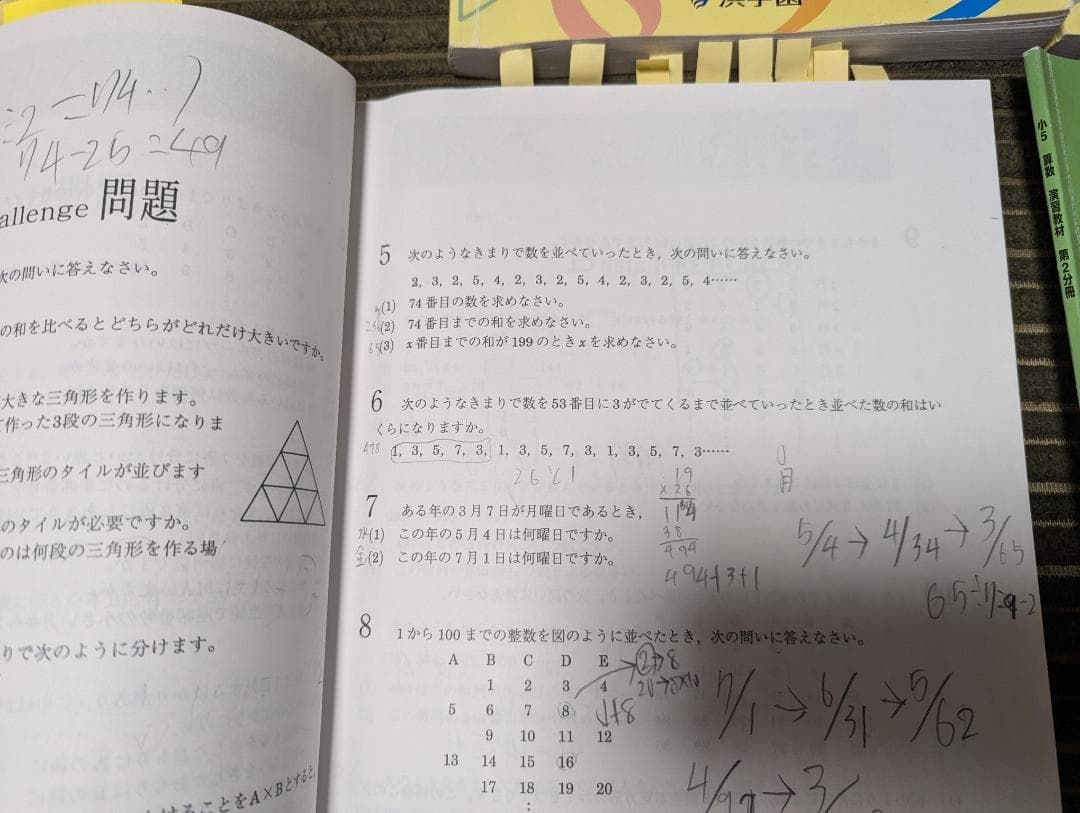 浜学園
小5 算数 演習教材 第2分冊
74-25=49
allenge 問題
次の問いに答えなさい。
の和を比べるとどちらがどれだけ大きいですか。
大きな三角形を作ります。
作った3段の三角形になりま
三角形のタイルが並びます
のタイルが必要ですか。
のは何段の三角形を作る場
りで次のように分けます。
けることをA×Bとすると,
5 次のようなきまりで数を並べていったとき,次の問いに答えなさい。
2, 3, 2, 5, 4, 2, 3, 2, 5, 4, 2, 3, 2, 5, 4……
(1) 74番目の数を求めなさい。
(2) 74番目までの和を求めなさい。
(3) x番目までの和が199のときxを求めなさい。
6 次のようなきまりで数を53番目に3がでてくるまで並べていったとき並べた数の和はい
くらになりますか。
1, 3, 5, 7, 3, 1, 3, 5, 7, 3, 1, 3, 5, 7, 3……
19
×26
114
38
494
494+3+1
7 ある年の3月7日が月曜日であるとき,
(1) この年の5月4日は何曜日ですか。
(2) この年の7月1日は何曜日ですか。
月
5/4→4/34→3/65
8 1から100までの整数を図のように並べたとき,次の問いに答えなさい。
A B C D E
1 2 3 4
5 6 7 8
9 10 11 12
13 14 15 16
17 18 19 20
⋮
7/1→6/31→5/62